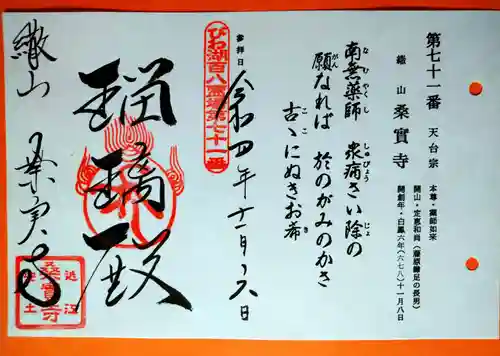 第七十一番 天台宗
繖山 桑實寺
本尊・薬師如来
開山・定恵和尚(藤原鎌足の長男)
開創年・白鳳六年(六七八)十一月八日
南無薬師 衆病さい除の
なむやくし しゅびょう じょ
願なれば 於のがみのかさ
がん
古ゝにぬきお希
ここ き
参拝日
令和四年十一月十六日
びわ湖百八霊場第七十一番
瑠璃殿
繖山
桑実寺